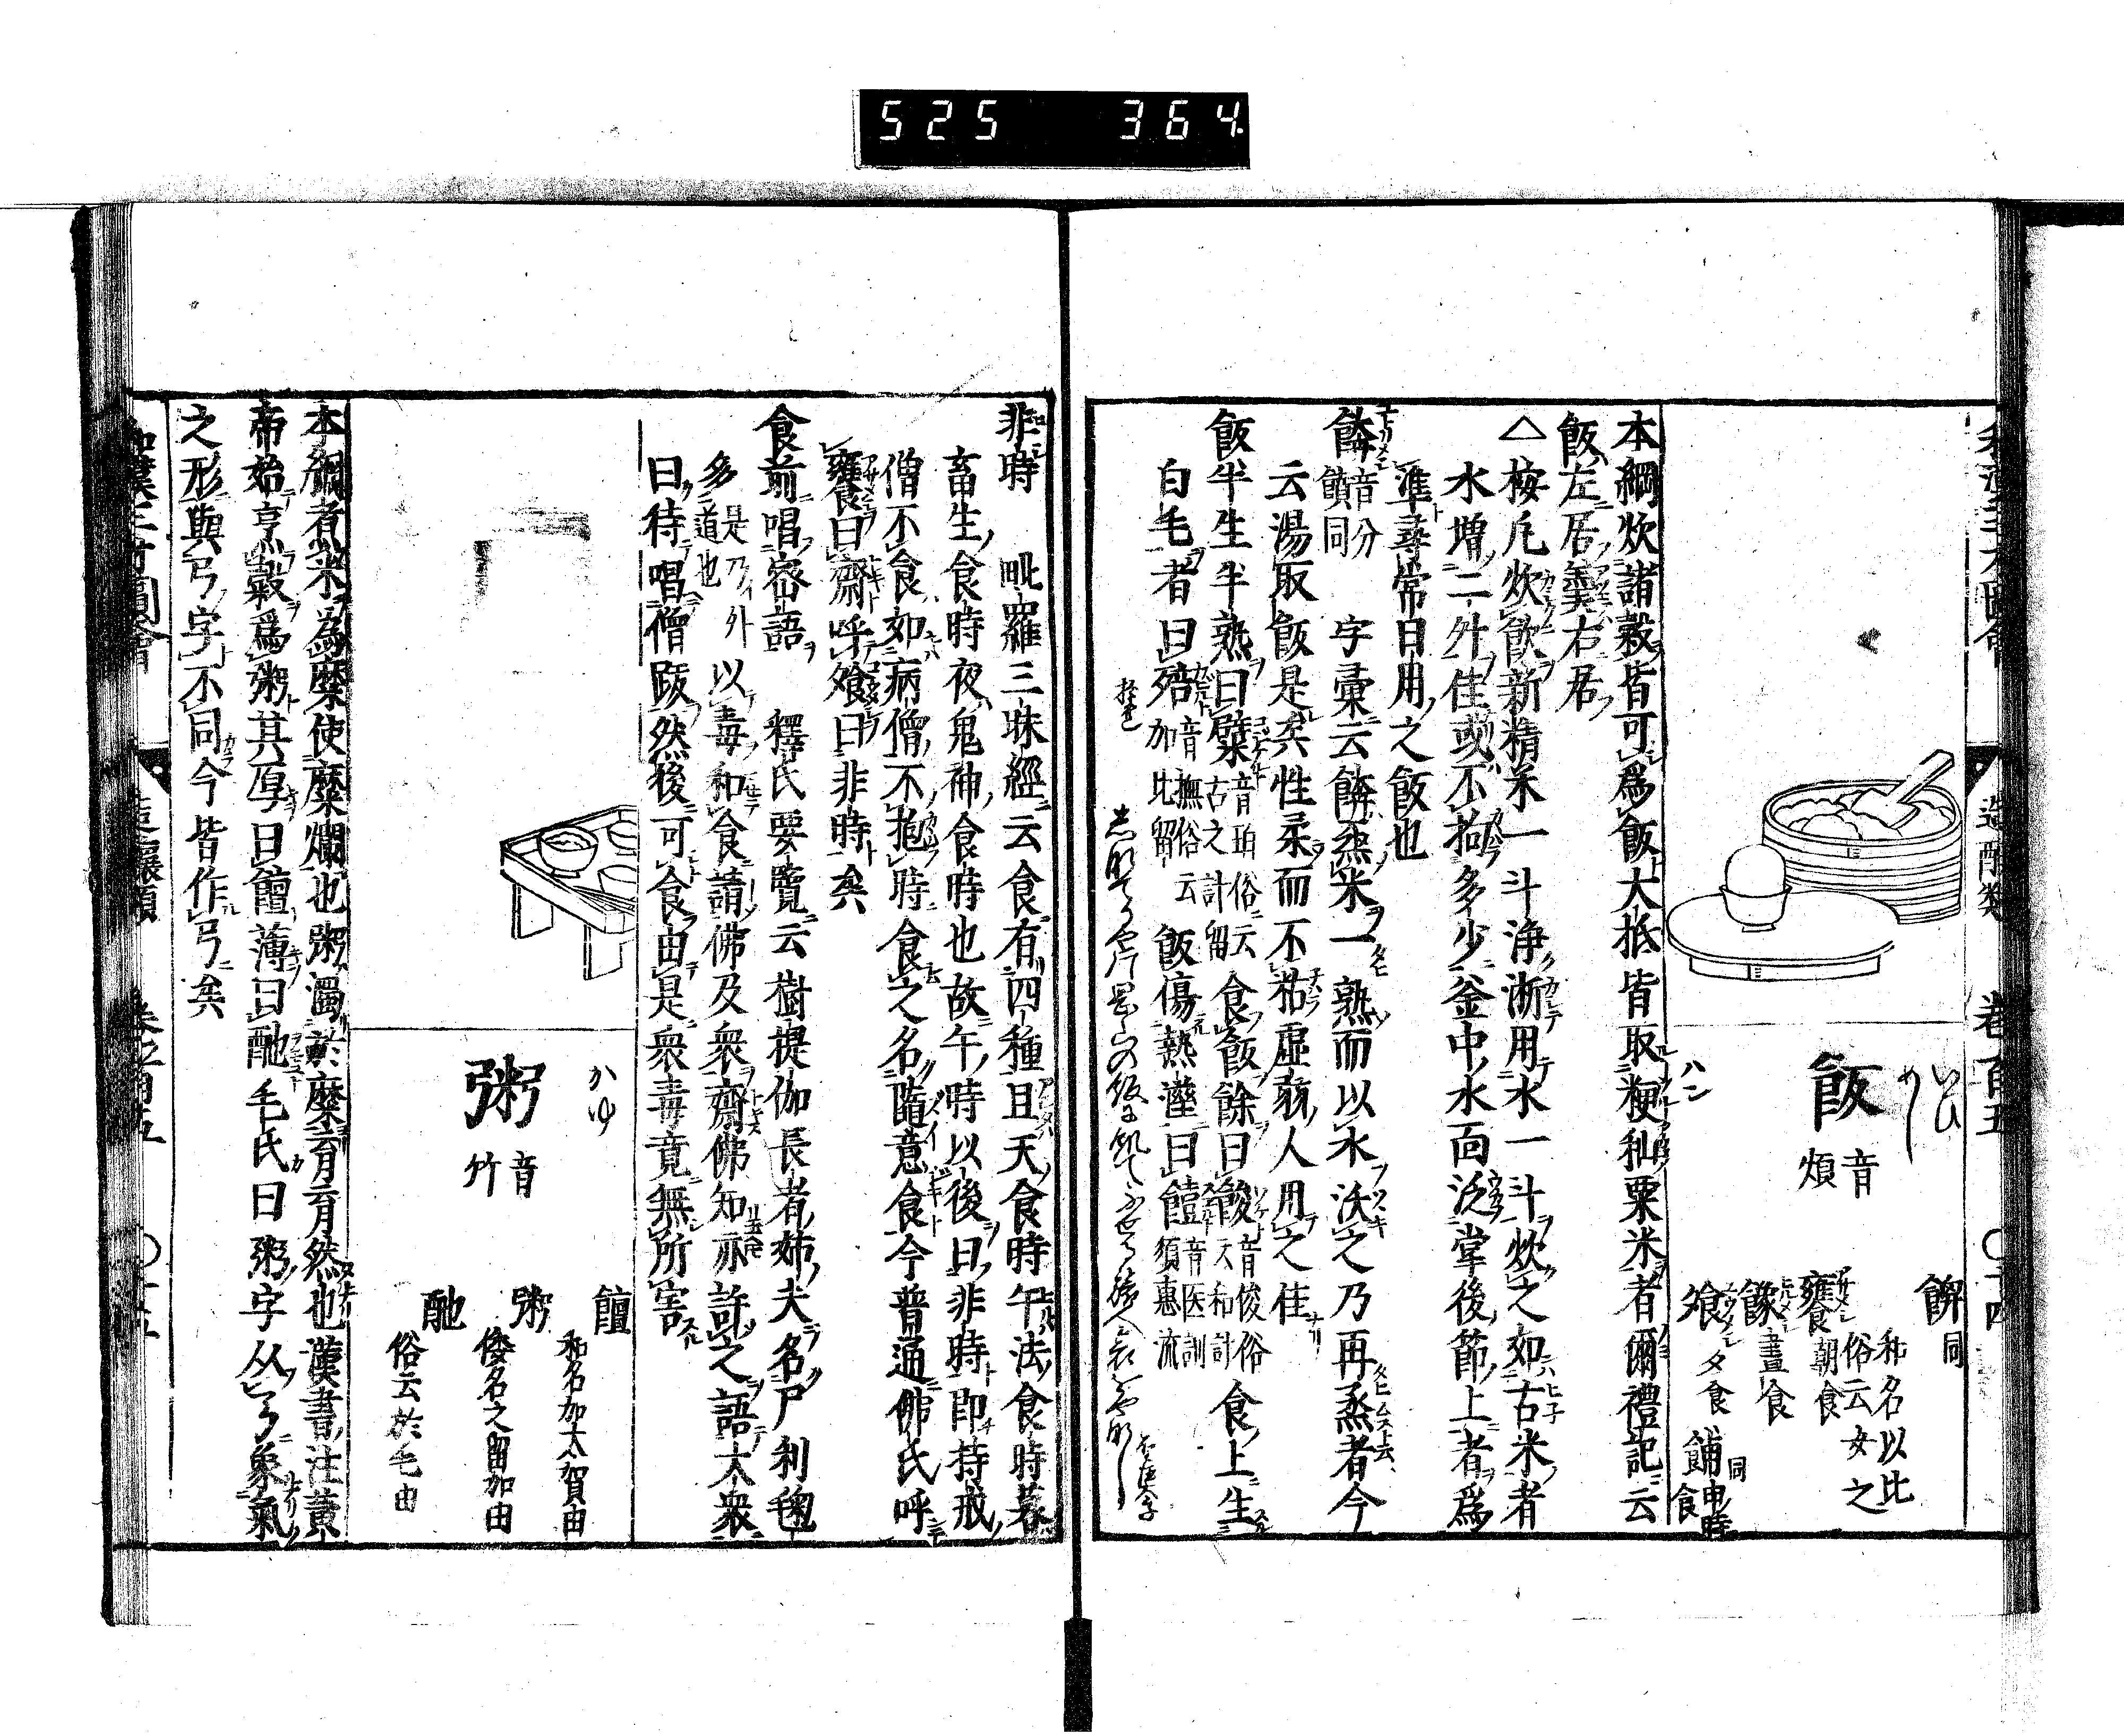 525 364
造釀類 卷百五 〇十四
いひ
めし
飯 音煩
ハン
餅同
和名以比
俗云女之
饔 朝食
餯 晝食
飧 夕食 餔同 申時食
本綱炊諸穀皆可爲飯大抵皆取粳秈粟米者爾禮記云
飯左居羹右居
△按凡炊飮新精米一斗淨淅用水一斗炊之如古米者
水増二升佳或不拘多少釜中水面泛掌後節上者爲
準尋常日用之飯也
饙 音分 饋同 字彙云饙烝米一熟而以水沃之乃再蒸者今
云湯取飯是矣性柔而不粘虛弱人用之佳
飯半生半熟曰糪 音珀俗云古之計留 食飯餘曰餕 音俊俗天和計 食上生
白毛者曰䬦 音撫俗云加比留 飯傷熱濕曰饐 音医訓須惠流
非時 毗羅三昧經云食有四種旦天食時午法食時暮
畜生食時夜鬼神食時也故午時以後曰非時即持戒
僧不食如病僧不抱時食之名隨意食今普通佛氏呼
饔曰齋呼飧曰非時矣
食前唱密語 釋氏要覽云樹提伽長者姉夫名尸利毱
多 是乃外道也 以毒和食請佛及衆齋佛知亦許之語大衆
曰待唱僧跋然後可食由是衆毒竟無所害
かゆ
粥 音竹
饘 和名加太賀由
粥 倭名之留加由
酏 俗云於毛由
本綱煮米爲糜使糜爛也粥濁於糜育育然也漢書注黃
帝始烹穀爲粥其厚曰饘薄曰酏毛氏曰粥字从弓象氣
之形與弓字不同今皆作弓矣
和漢三才圖會 造釀類 卷之百五 〇十五